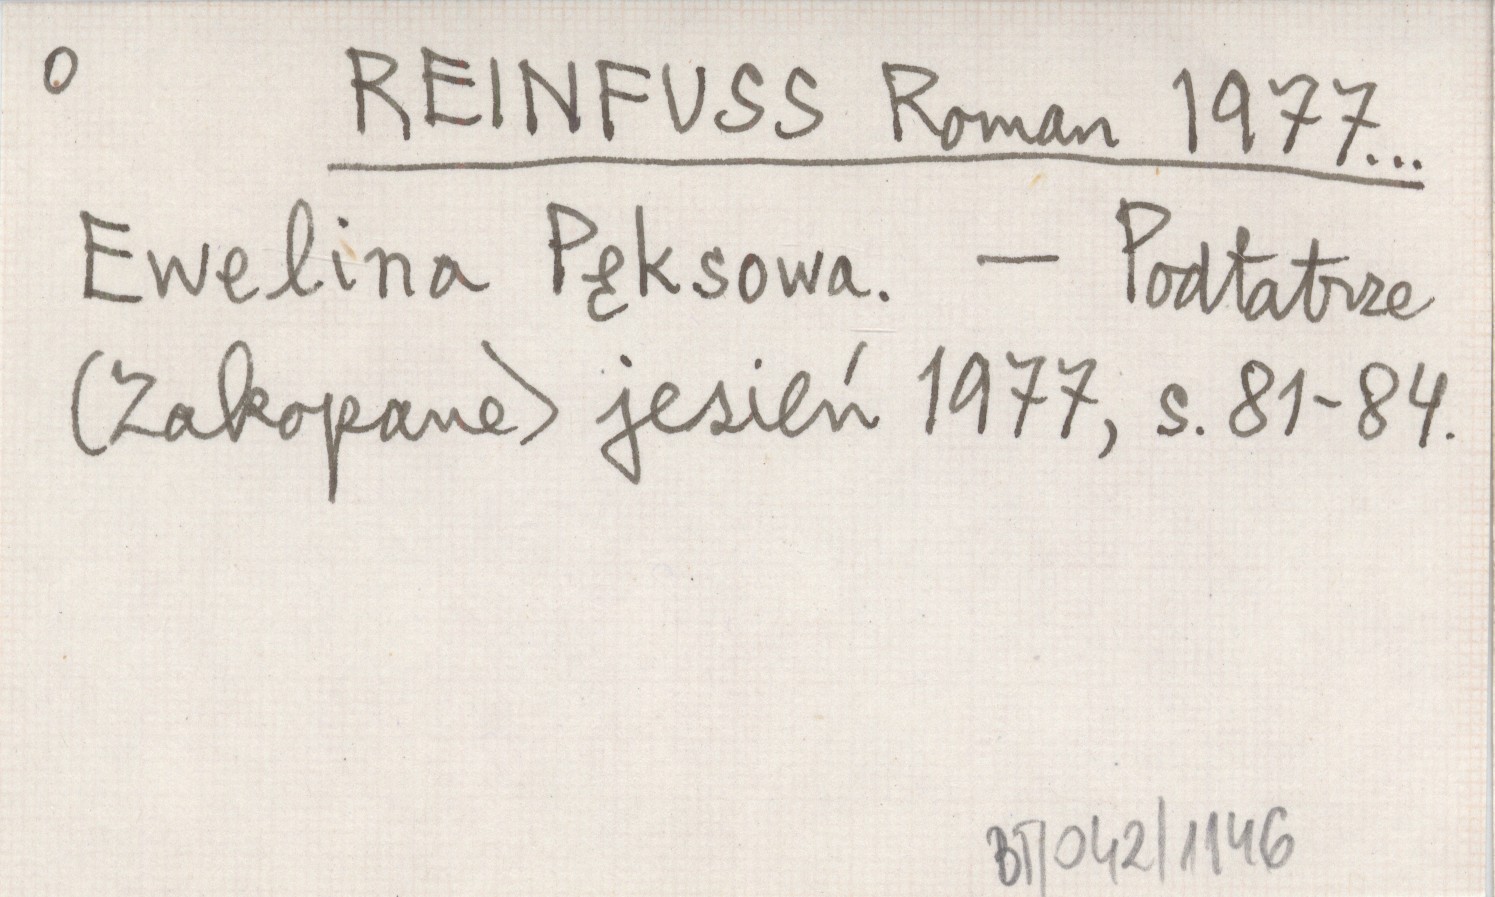 O REINFUSS Roman 1977...
Ewelina Pęksowa. — Podtatrze
(Zakopane) jesień 1977, s. 81-84.
BT/042/1146